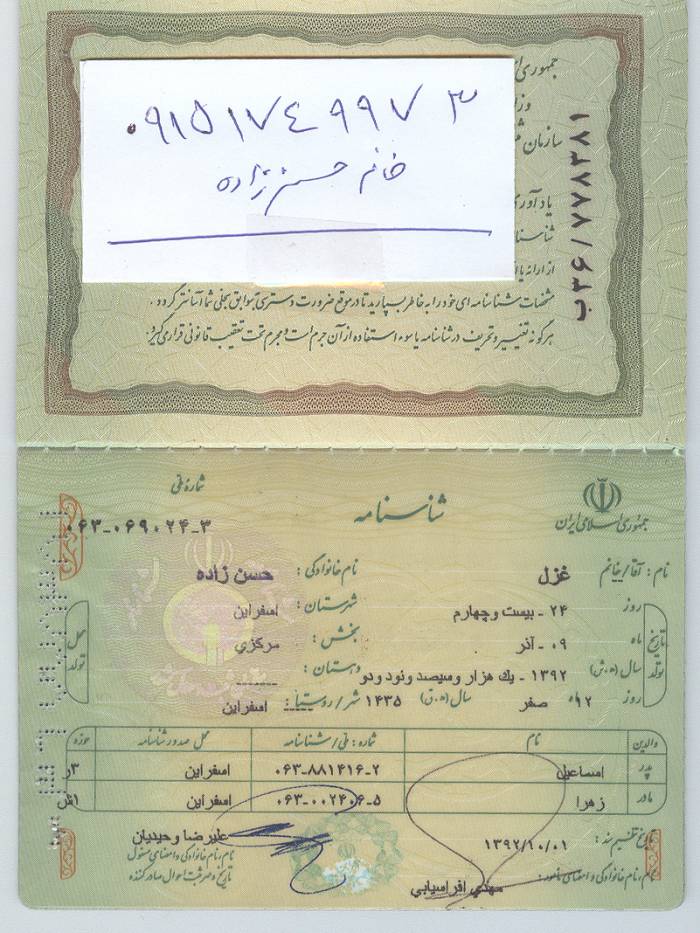 ۰۹۱۵۱۷۴۹۹۷۳
خانم حسن زاده
جمهوری
سازمان
یادآوری
شناسنا
از ارائه یا
مشخصات شناسنامه ای خود را به خاطر بسپارید تا در موقع ضرورت دسترسی بسوابق سجلی شما آسانتر گردد.
هرگونه تغییر و تحریف در شناسنامه یا سوء استفاده از آن جرم است و مجرم تحت تعقیب قانونی قرار می گیرد.
ب۳۶/۷۷۸۳۸۱
جمهوری اسلامی ایران
شناسنامه
شماره ملی
۰۶۳-۰۶۹۰۲۴-۳
نام: آقا/خانم غزل نام خانوادگی: حسن زاده
تاریخ تولد
روز ۲۴ - بیست و چهارم
ماه ۰۹ - آذر
سال (ه.ش) ۱۳۹۲ - یک هزار و سیصد و نود و دو
روز ۲۱ ماه صفر سال (ه.ق) ۱۴۳۵
محل تولد
شهرستان: اسفراین
بخش: مرکزی
دهستان: -------
شهر/روستا: اسفراین
والدین نام شماره: ملی/شناسنامه محل صدور شناسنامه حوزه
پدر اسماعیل ۰۶۳-۸۸۱۴۱۶-۲ اسفراین ۳ر
مادر زهرا ۰۶۳-۰۰۲۴۰۶-۵ اسفراین ۱ش
تاریخ تنظیم سند: ۱۳۹۲/۱۰/۰۱
نام، نام خانوادگی و امضای مامور: مهدی افراسیابی
علیرضا وحیدیان
نام، نام خانوادگی و امضای مسئول
تاریخ و مهر ثبت احوال صادر کننده